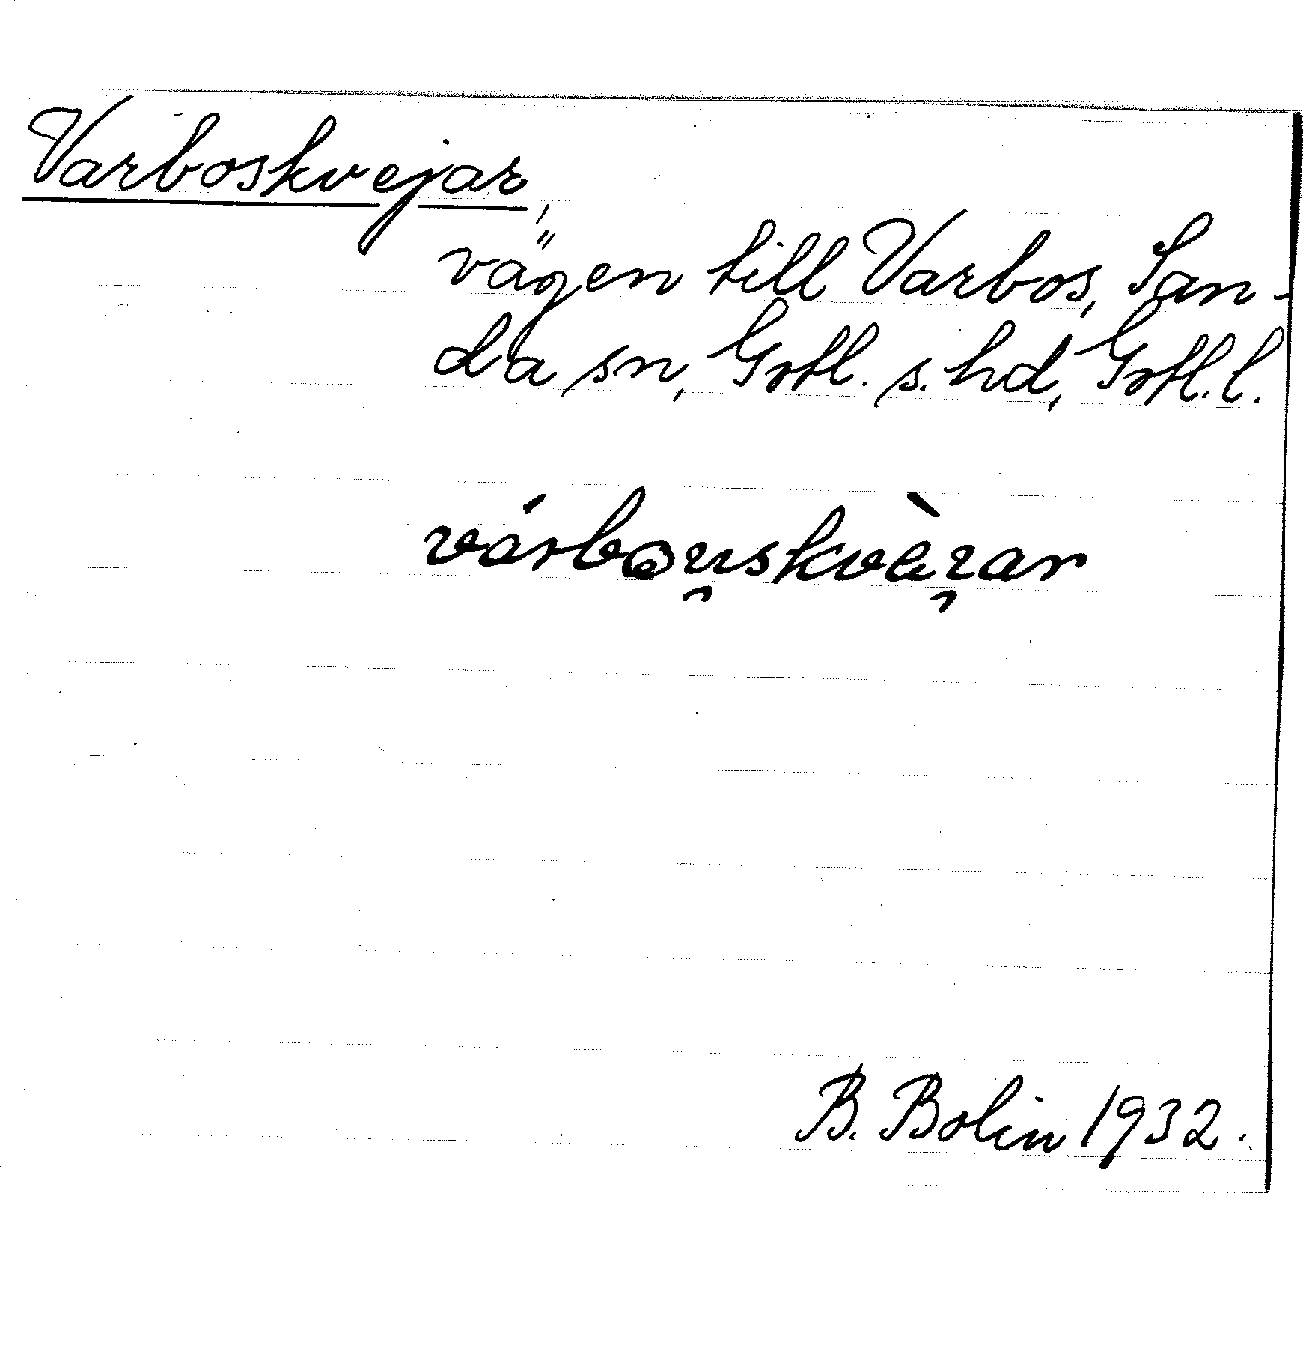 Varboskvejar,
vägen till Varbos, San-
da sn, Gotl. s. hd, Gotl. l.
várbou̯skvàɪ̯ar
B. Bolin 1932.